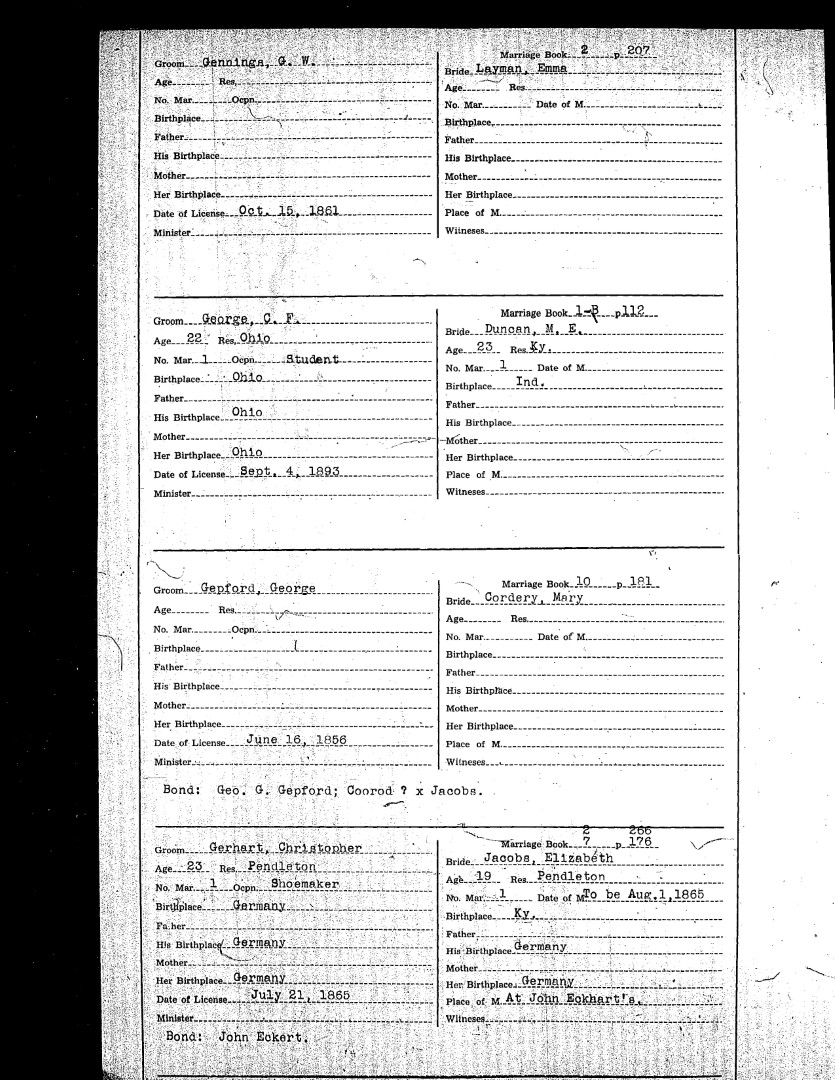 Marriage Book 2 p 207
Groom Gennings, G. W.
Bride Layman, Emma
Age Res.
Age Res
No. Mar. Ocpn.
No. Mar. Date of M.
Birthplace
Birthplace
Father
Father
His Birthplace
His Birthplace
Mother
Mother
Her Birthplace
Her Birthplace
Date of License Oct. 15, 1861
Place of M.
Minister
Witneses
Marriage Book 1-B p 112
Groom George, C. F.
Bride Duncan, M. E.
Age 22 Res. Ohio
Age 23 Res Ky.
No. Mar 1 Ocpn. Student
No. Mar. 1 Date of M.
Birthplace Ohio
Birthplace Ind.
Father
Father
His Birthplace Ohio
His Birthplace
Mother
Mother
Her Birthplace Ohio
Her Birthplace
Date of License Sept. 4, 1893
Place of M.
Minister
Witneses
Marriage Book 10 p 181
Groom Gepford, George
Bride Cordery, Mary
Age Res.
Age Res.
No. Mar. Ocpn.
No. Mar. Date of M.
Birthplace
Birthplace
Father
Father
His Birthplace
His Birthplace
Mother
Mother
Her Birthplace
Her Birthplace
Date of License June 16, 1856
Place of M.
Minister
Witneses
Bond: Geo. G. Gepford; Coorod ? x Jacobs.
2 266
Marriage Book 7 p 176
Groom Gerhart, Christopher
Bride Jacobs, Elizabeth
Age 23 Res. Pendleton
Age 19 Res. Pendleton
No. Mar. 1 Ocpn. Shoemaker
No. Mar. 1 Date of M To be Aug.1,1865
Birthplace Germany
Birthplace Ky.
Father
Father
His Birthplace Germany
His Birthplace Germany
Mother
Mother
Her Birthplace Germany
Her Birthplace Germany
Date of License July 21, 1865
Place of M. At John Eckhart's.
Minister
Witneses
Bond: John Eckert.